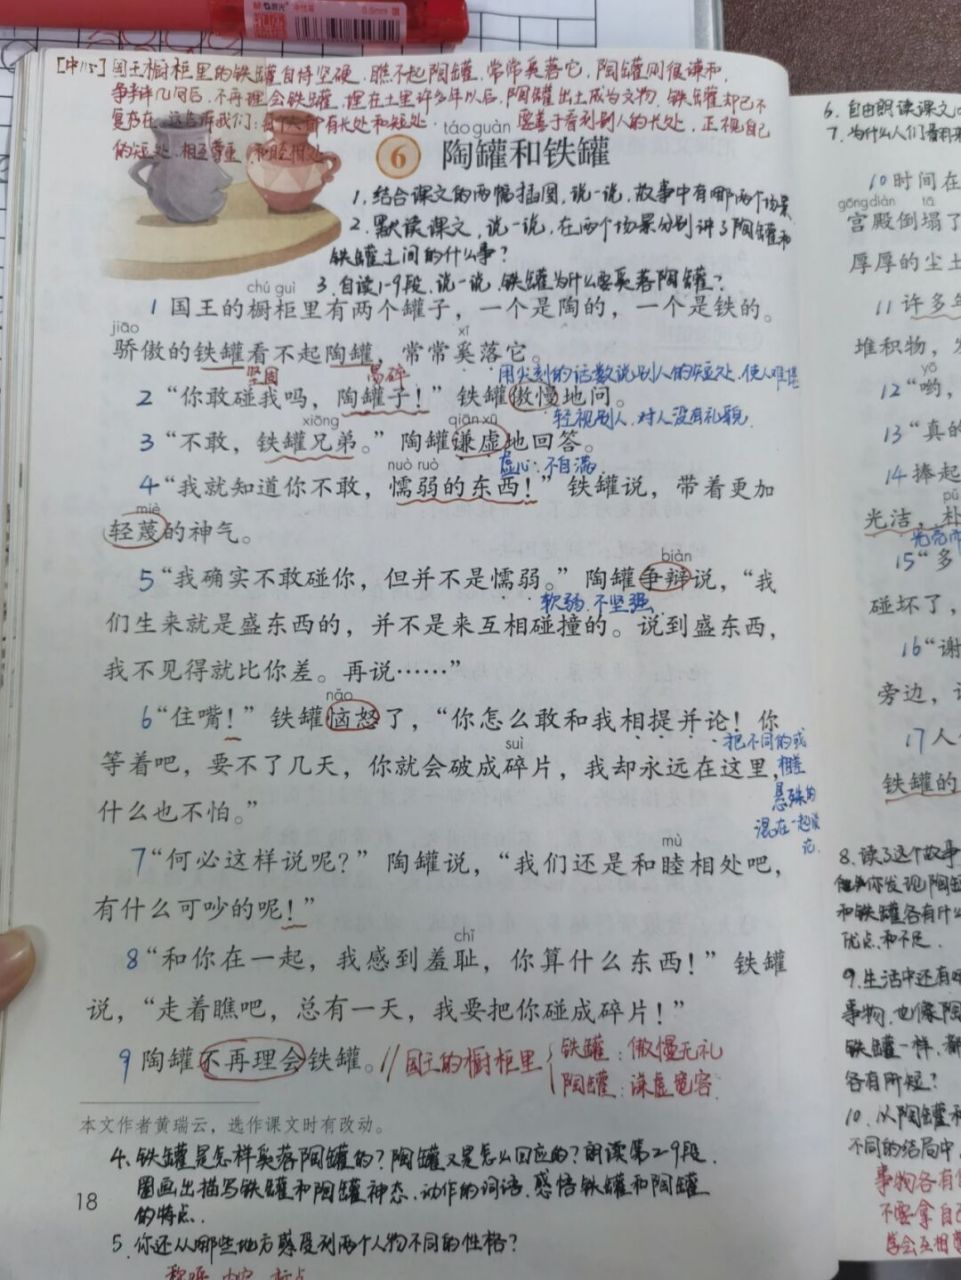 [中心] 国王橱柜里的铁罐自恃坚硬,瞧不起陶罐,常常奚落它,陶罐则很谦和,
争辩几句后,不再理会铁罐,埋在土里许多年以后,陶罐出土成为文物,铁罐却已不
复存在,这告诉我们:每个人都有长处和短处. 要善于看到别人的长处,正视自己
的短处,相互尊重,和睦相处
táo guàn
6 陶罐和铁罐
1.结合课文的两幅插图,说一说,故事中有哪两个场景
2.默读课文,说一说,在两个场景分别讲了陶罐和
铁罐之间的什么事?
3.自读1-9段,说一说,铁罐为什么要奚落陶罐?
chú guì
1 国王的橱柜里有两个罐子,一个是陶的,一个是铁的。
jiāo xī
骄傲的铁罐看不起陶罐,常常奚落它。
坚固 易碎 用尖刻的话数说别人的短处,使人难堪
2 “你敢碰我吗,陶罐子!”铁罐傲慢地问。
轻视别人,对人没有礼貌.
xiōng qiān xū
3 “不敢,铁罐兄弟。”陶罐谦虚地回答。
虚心,不自满.
nuò ruò
4 “我就知道你不敢,懦弱的东西!”铁罐说,带着更加
miè
轻蔑的神气。
biàn
5 “我确实不敢碰你,但并不是懦弱。”陶罐争辩说,“我
软弱,不坚强
们生来就是盛东西的,并不是来互相碰撞的。说到盛东西,
我不见得就比你差。再说……”
nǎo
6 “住嘴!”铁罐恼怒了,“你怎么敢和我相提并论!你
把不同的或
suì
等着吧,要不了几天,你就会破成碎片,我却永远在这里,
相差
悬殊的
混在一起谈
论.
什么也不怕。”
mù
7 “何必这样说呢?”陶罐说,“我们还是和睦相处吧,
有什么可吵的呢!”
chǐ
8 “和你在一起,我感到羞耻,你算什么东西!”铁罐
说,“走着瞧吧,总有一天,我要把你碰成碎片!”
9 陶罐不再理会铁罐。// 国王的橱柜里
铁罐:傲慢无礼
陶罐:谦虚宽容.
本文作者黄瑞云,选作课文时有改动。
4.铁罐是怎样奚落陶罐的?陶罐又是怎么回应的?朗读第2-9段.
圈画出描写铁罐和陶罐神态、动作的词语,感悟铁罐和陶罐
的特点.
18
5.你还从哪些地方感受到两个人物不同的性格?
6.自由朗读课文
7.为什么人们
10 时间在
gōng diàn tā
宫殿倒塌了
厚厚的尘土
11 许多年
堆积物,
yō
12 “哟,
13 “真的
14 捧起
pǔ
光洁,朴
15 “多
碰坏了,
16 “谢
旁边,
17 人
铁罐的
8.读了这个故事
你发现陶罐
和铁罐各有什么
优点和不足.
9.生活中还有哪
事物,也像陶
铁罐一样,都
各有所短?
10.从陶罐和
不同的结局中,
事物各有
不要拿自己
学会互相